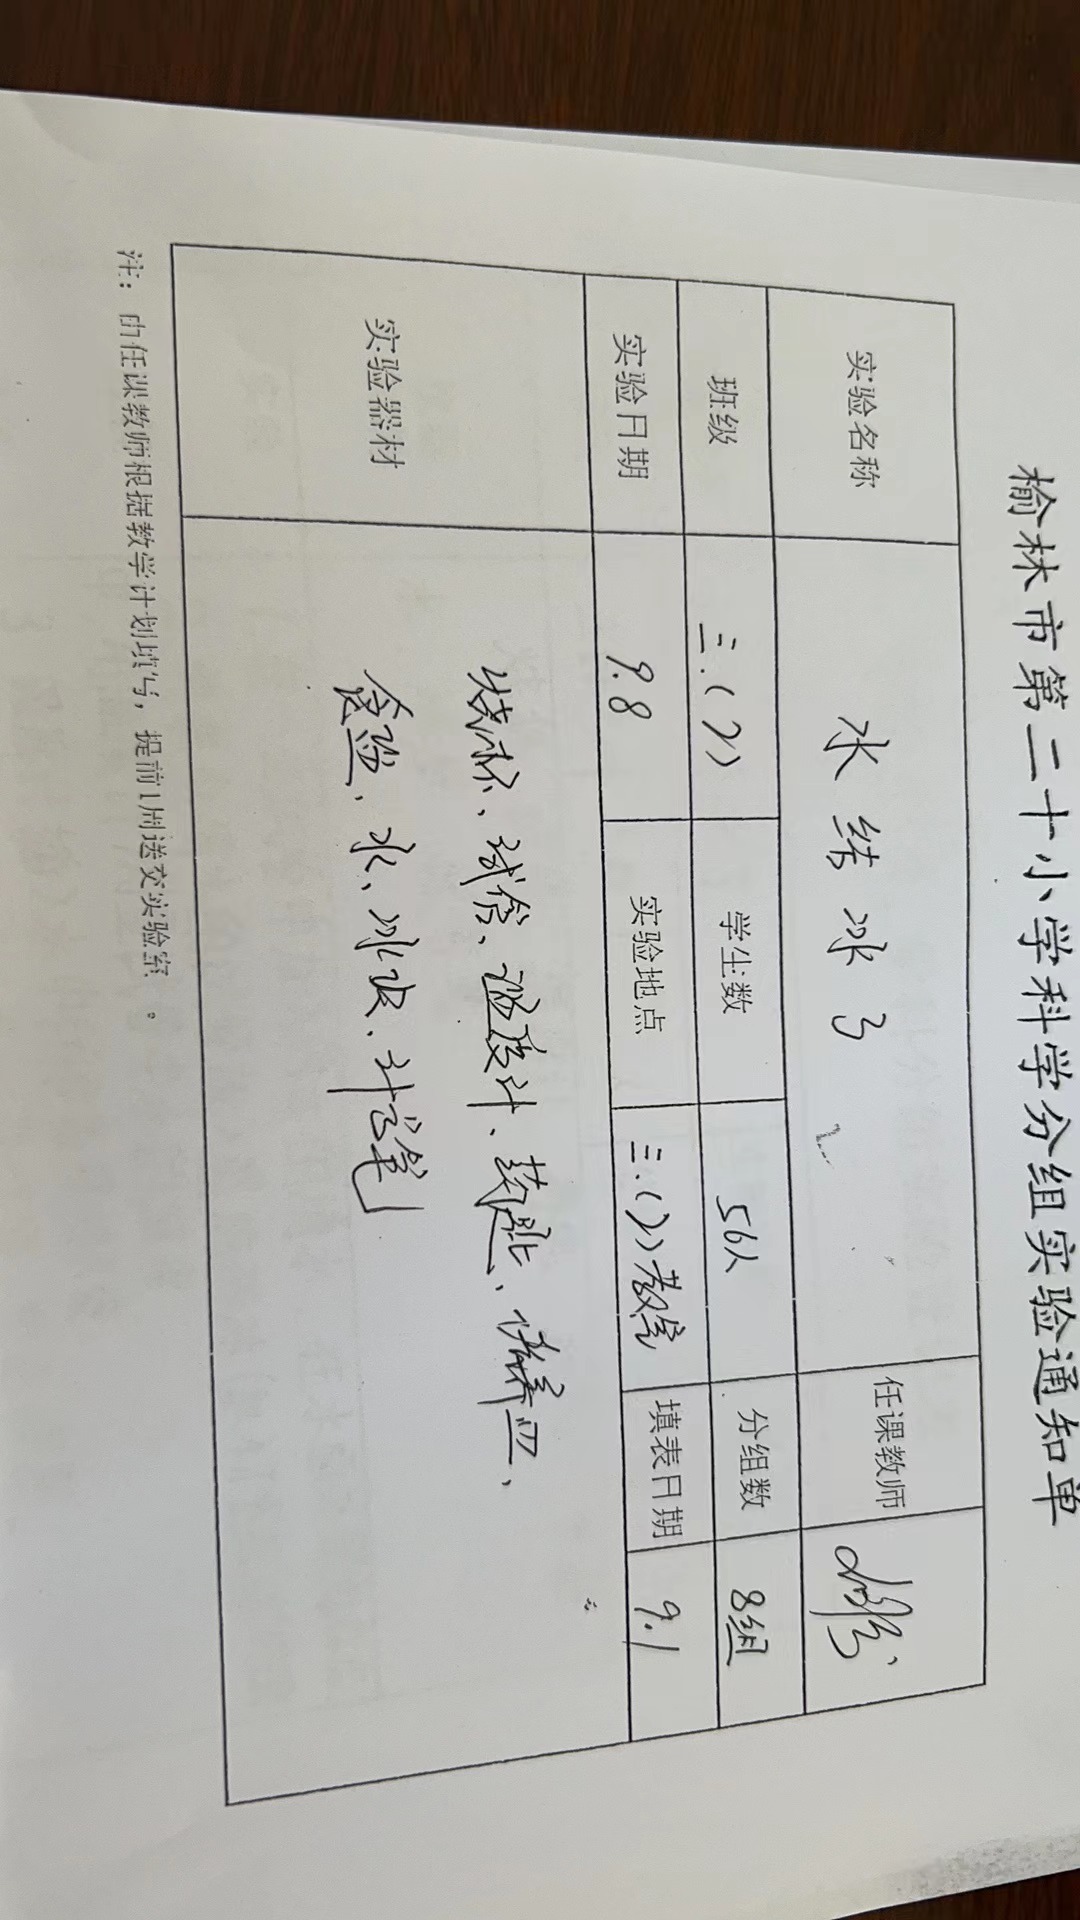 榆林市第二十小学科学分组实验通知单
实验名称 水结冰了 任课教师
班级 三.(2) 学生数 56人 分组数 8组
实验日期 9.8 实验地点 三.(2)教室 填表日期 9.1
实验器材 烧杯、试管、温度计、药匙、培养皿、
食盐、水、冰块、计算
注：由任课教师根据教学计划填写，提前1周送交实验室。